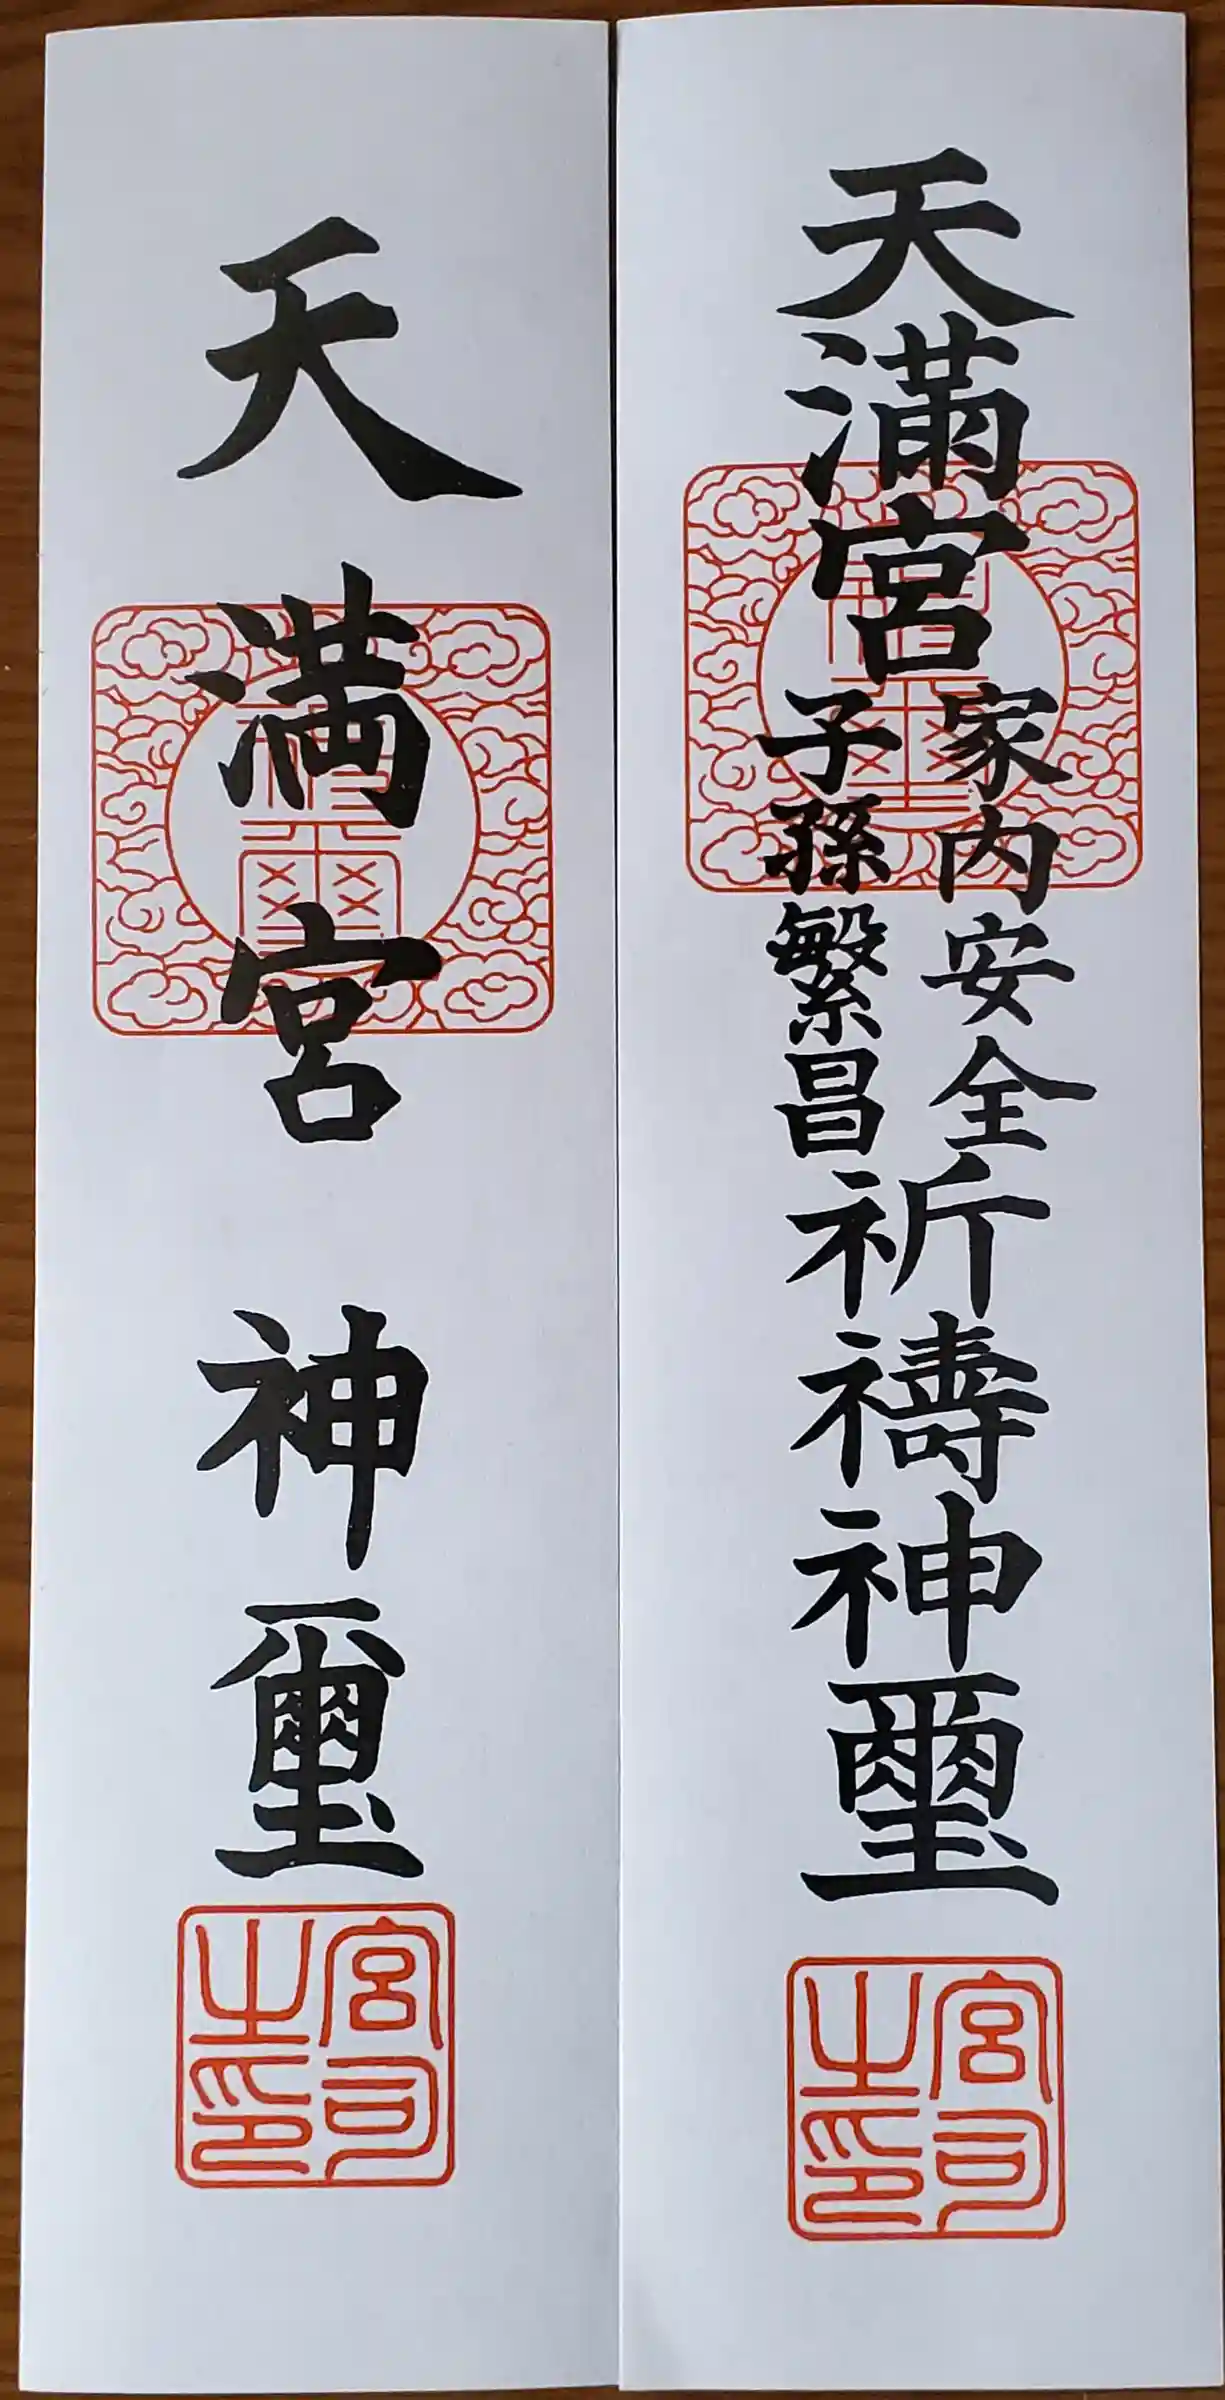 天満宮
家内安全
子孫繁昌
祈禱神璽
宮司
之印
天満宮 神璽
宮司
之印